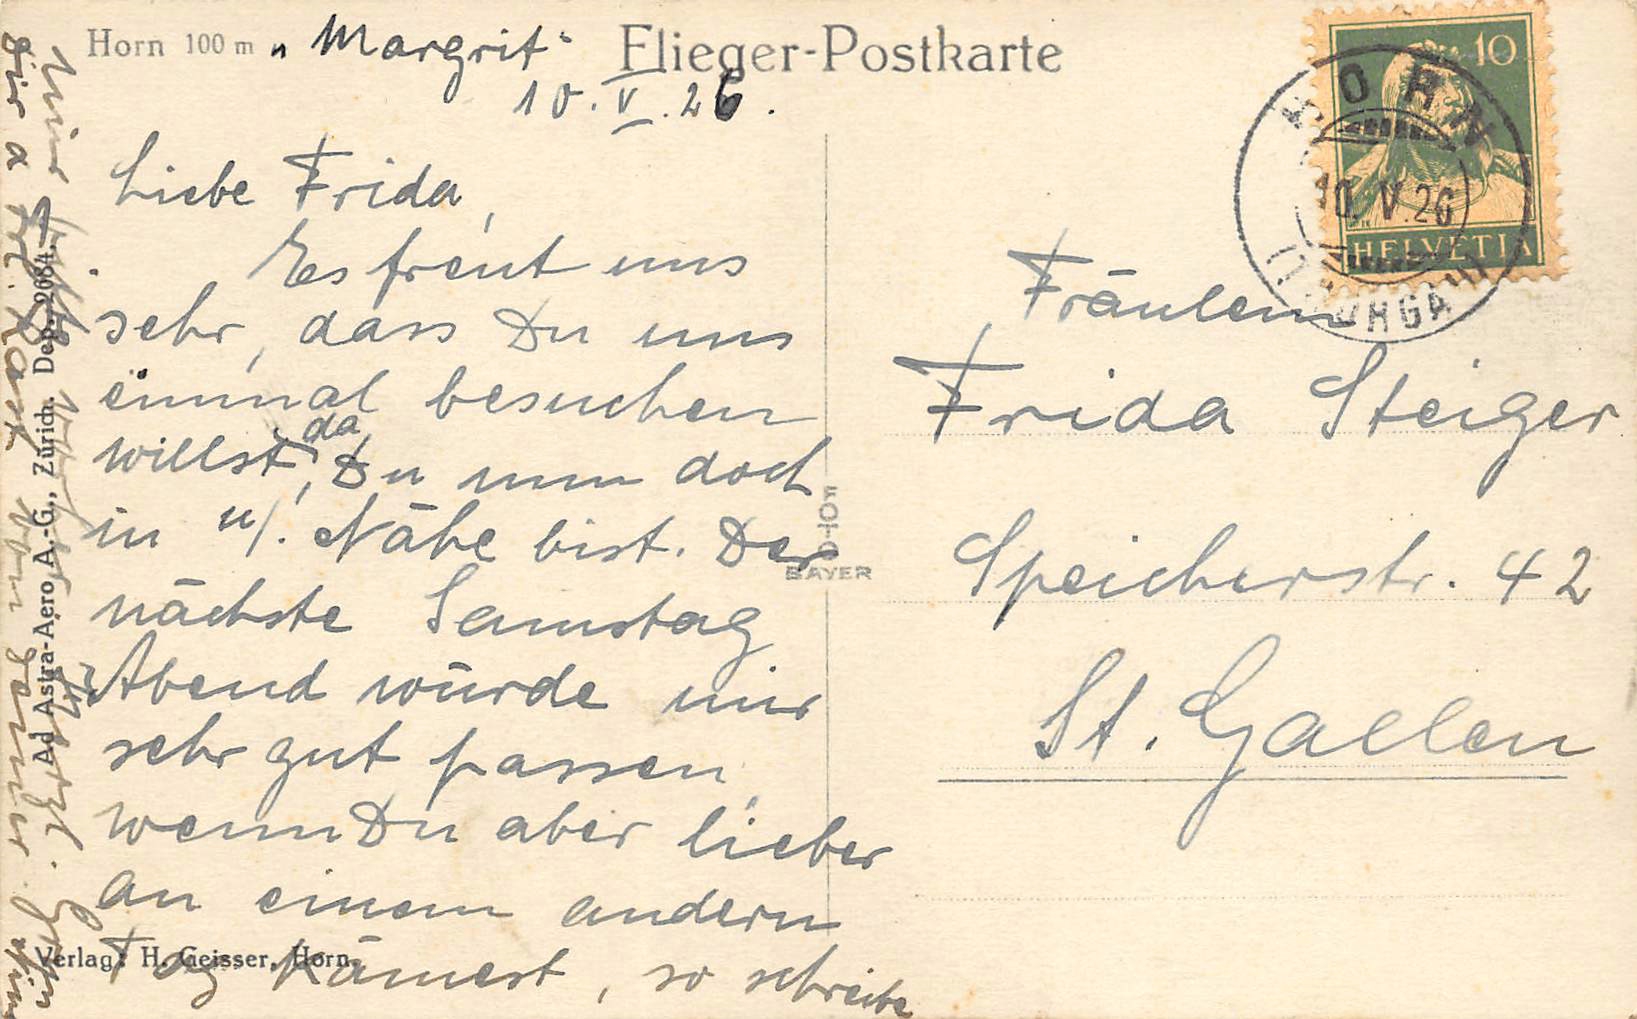 Horn 100 m „Margrit“ Flieger-Postkarte
10. V. 26.
Liebe Frida,
Es freut uns
sehr, dass Du uns
einmal besuchen
willst, da Du nun doch
in u/. Nähe bist. Der
nächste Samstag
Abend würde mir
sehr gut passen,
wenn Du aber lieber
an einem andern
Tag kämest, so schreibe
Verlag: H. Geisser, Horn.
Ad Astra-Aero A.-G., Zürich. Dep. 2684.
FOTO
BAYER
10
HELVETIA
HORN
10. V. 26
(THURGAU)
Fräulein
Frida Steiger
Speicherstr. 42
St. Gallen